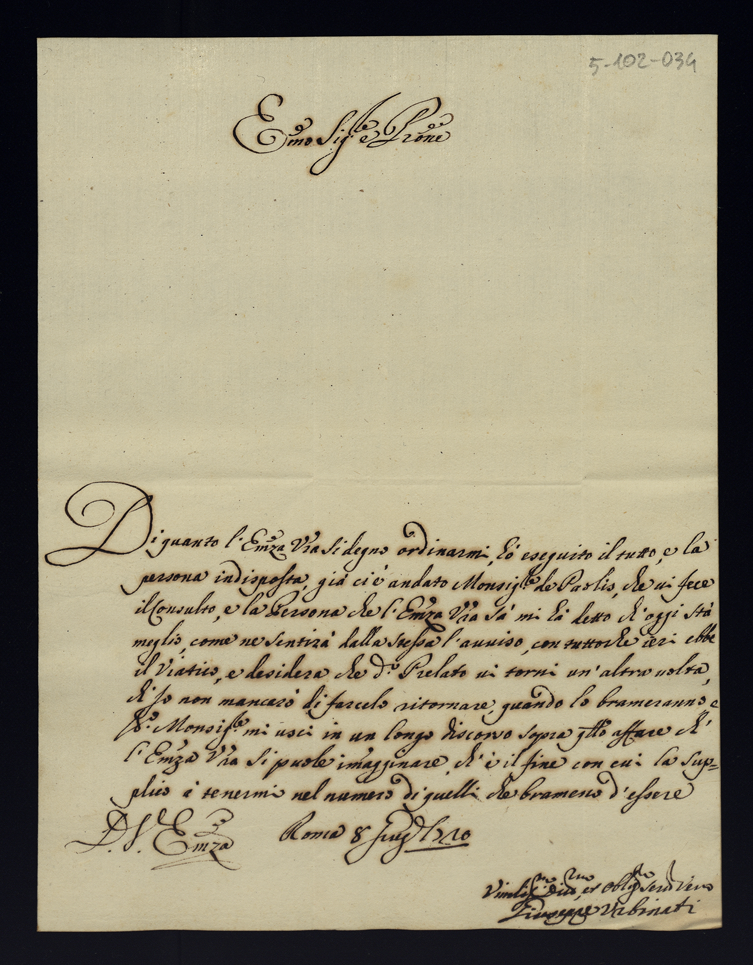 5-102-034
Emo Sigre e Prone
Di quanto l'Emza Vra si degnò ordinarmi, hò eseguito il tutto, e la
persona indisposta, già ci è andato Monsigre de Paolis, che vi fece
il Consulto, e la Persona che l'Emza Vra sà mi hà detto ch'oggi stà
meglio, come ne sentirà dalla stessa l'avviso, con tutto che ieri ebbe
il Viatico, e desidera che do Prelato vi torni un'altra volta,
ch'Io non mancarò di farcelo ritornare quando lo brameranno, e
do Monsigre mi uscì in un longo discorso sopra qto affare ch'
l'Emza Vra si puole imagginare, ch'è il fine con cui la sup=
plico à tenermi nel numero di quelli che bramono d'essere
D. V. Emza Roma 8 Giug
Giuseppe Urbinati